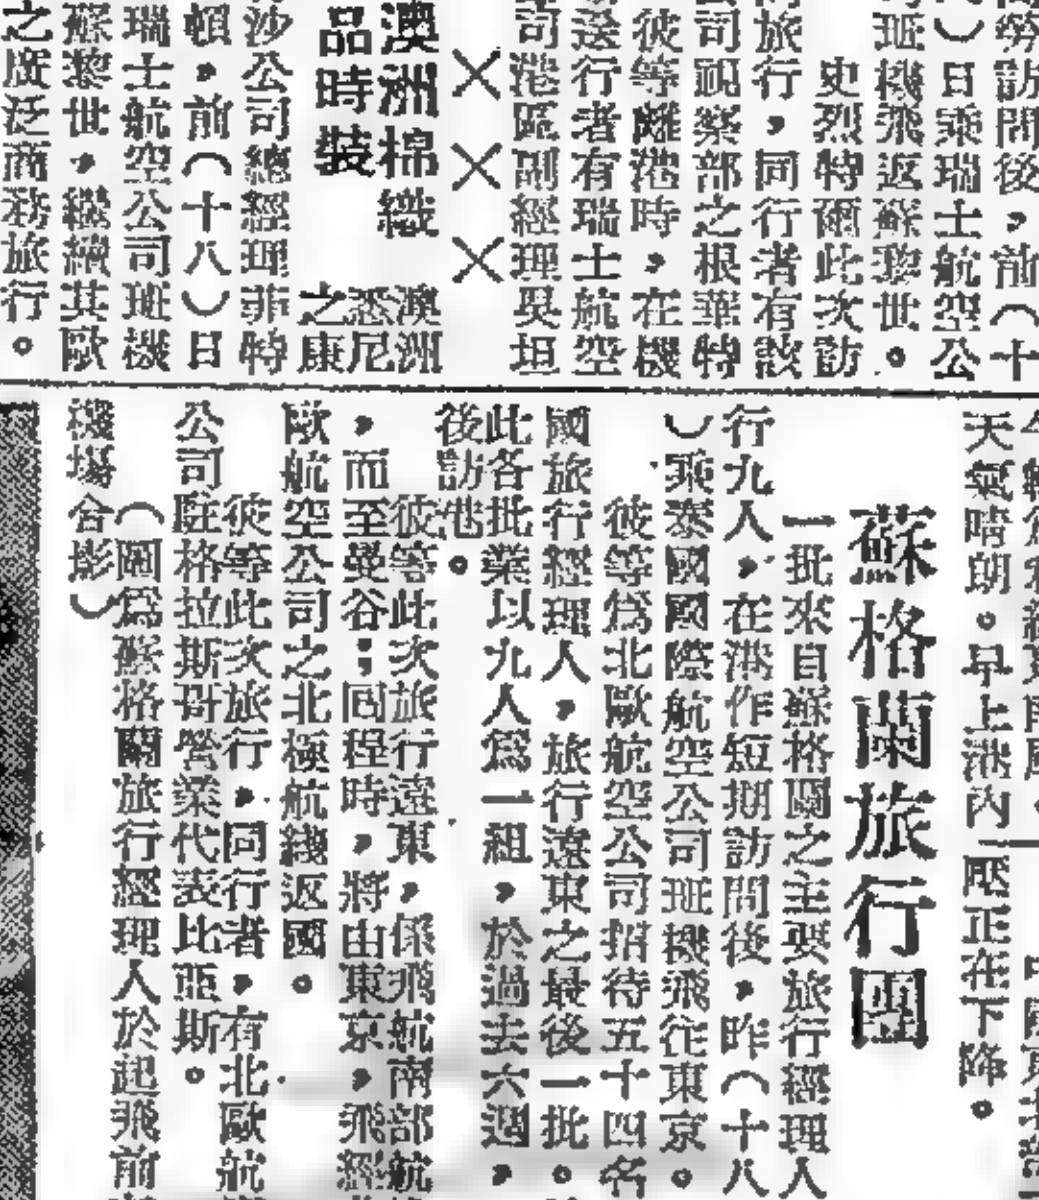 間後，前（十
）日乘瑞士航空公
班機飛返蘇黎世。
史烈特爾此次訪
旅行，同行者有該
司視察部之根華特
彼等離港時，在機
送行者有瑞士航空
司港區副經理吳坦
×××
澳洲棉織
品時裝
澳洲
悉尼
之康
沙公司總經理菲特
頓，前（十八）日
瑞士航空公司班機
蘇黎世，繼續其歐
之廣泛商務旅行。
天氣晴朗。早上港內
壓正在下降。
蘇格蘭旅行團
一批來自蘇格蘭之主要旅行經理人
行九人，在港作短期訪問後，昨（十八
）乘泰國國際航空公司班機飛往東京。
彼等爲北歐航空公司招待五十四名
國旅行經理人，旅行遠東之最後一批。
此各批業以九人爲一組，於過去六週，
後訪港。
彼等此次旅行遠東，係飛航南部航
，而至曼谷；回程時，將由東京，飛經
歐航空公司之北極航綫返國。
彼等此次旅行，同行者，有北歐航
公司駐格拉斯哥營業代表比亞斯。
（圖爲蘇格蘭旅行經理人於起飛前
機場合影）